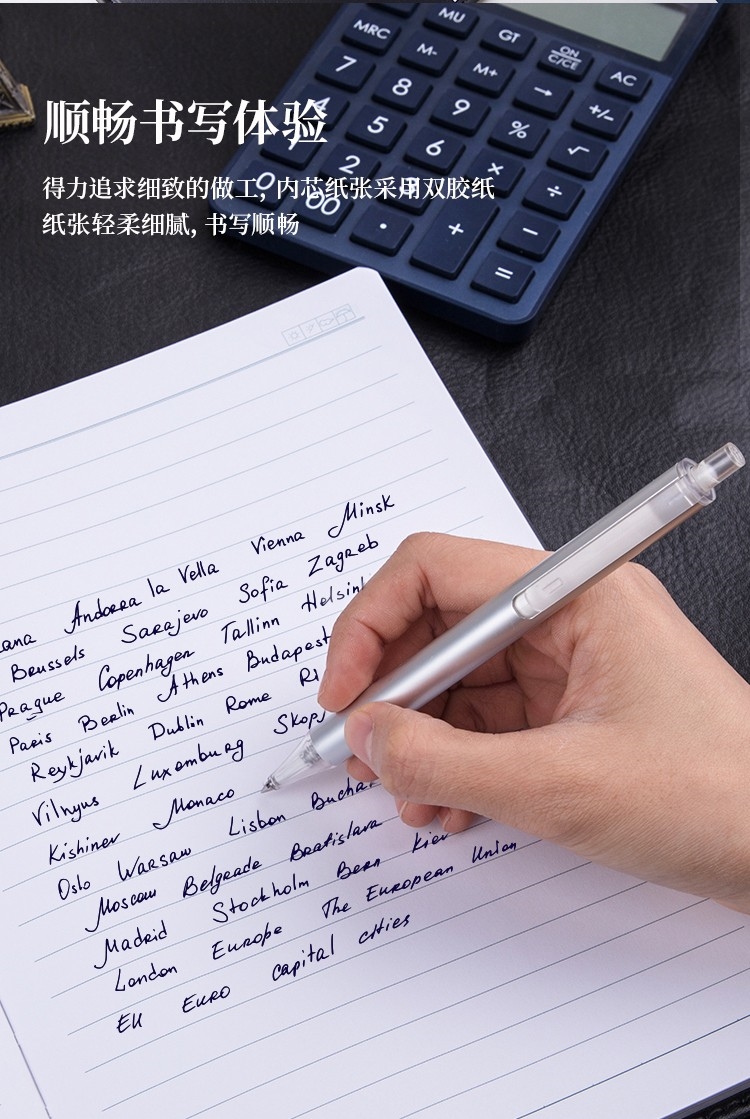 顺畅书写体验
得力追求细致的做工, 内芯纸张采用双胶纸
纸张轻柔细腻, 书写顺畅
MU
GT
ON
C/CE
AC
MRC
M-
M+
→
+/-
7
8
9
%
√
4
5
6
×
÷
1
2
3
+
−
0
00
·
=
Andorra la Vella Vienna Minsk
Brussels Sarajevo Sofia Zagreb
Prague Copenhagen Tallinn
Paris Berlin Athens Budapest
Reykjavik Dublin Rome
Vilnyus Luxemburg
Kishinev Monaco
Oslo Warsaw Lisbon
Moscow Belgrade Bratislava Kiev
Madrid Stockholm Bern
London Europe The European Union
EU Euro capital cities